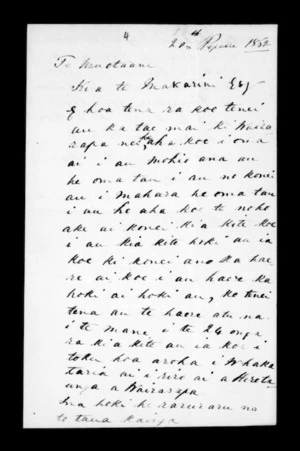 4
20th Pepuere 1852
Te Awotaane
Ki a te Makarini Esq
E hoa tena ra koe tenei
au ka tae mai ki Waira
rapa nei he aha koe i oma
ai i au mohio ana au
he oma tau i au no konei
au i mahara he oma tau
i au he aha koe te noho
ake ai konei kia kite koe
i au kia kite hoki au ia
koe ki konei ano ka hae
re ai koe i au haere ka
hoki ai hoki au, ko tenei
tena au te haere atu na
i te mane i te 24 onga
ra kia kite au ia koe i
toku hoa aroha i Whaka
taria ai i riro ai a Hereta
unga a Wairarapa.
Ina hoki he raruraru no
to taua kainga